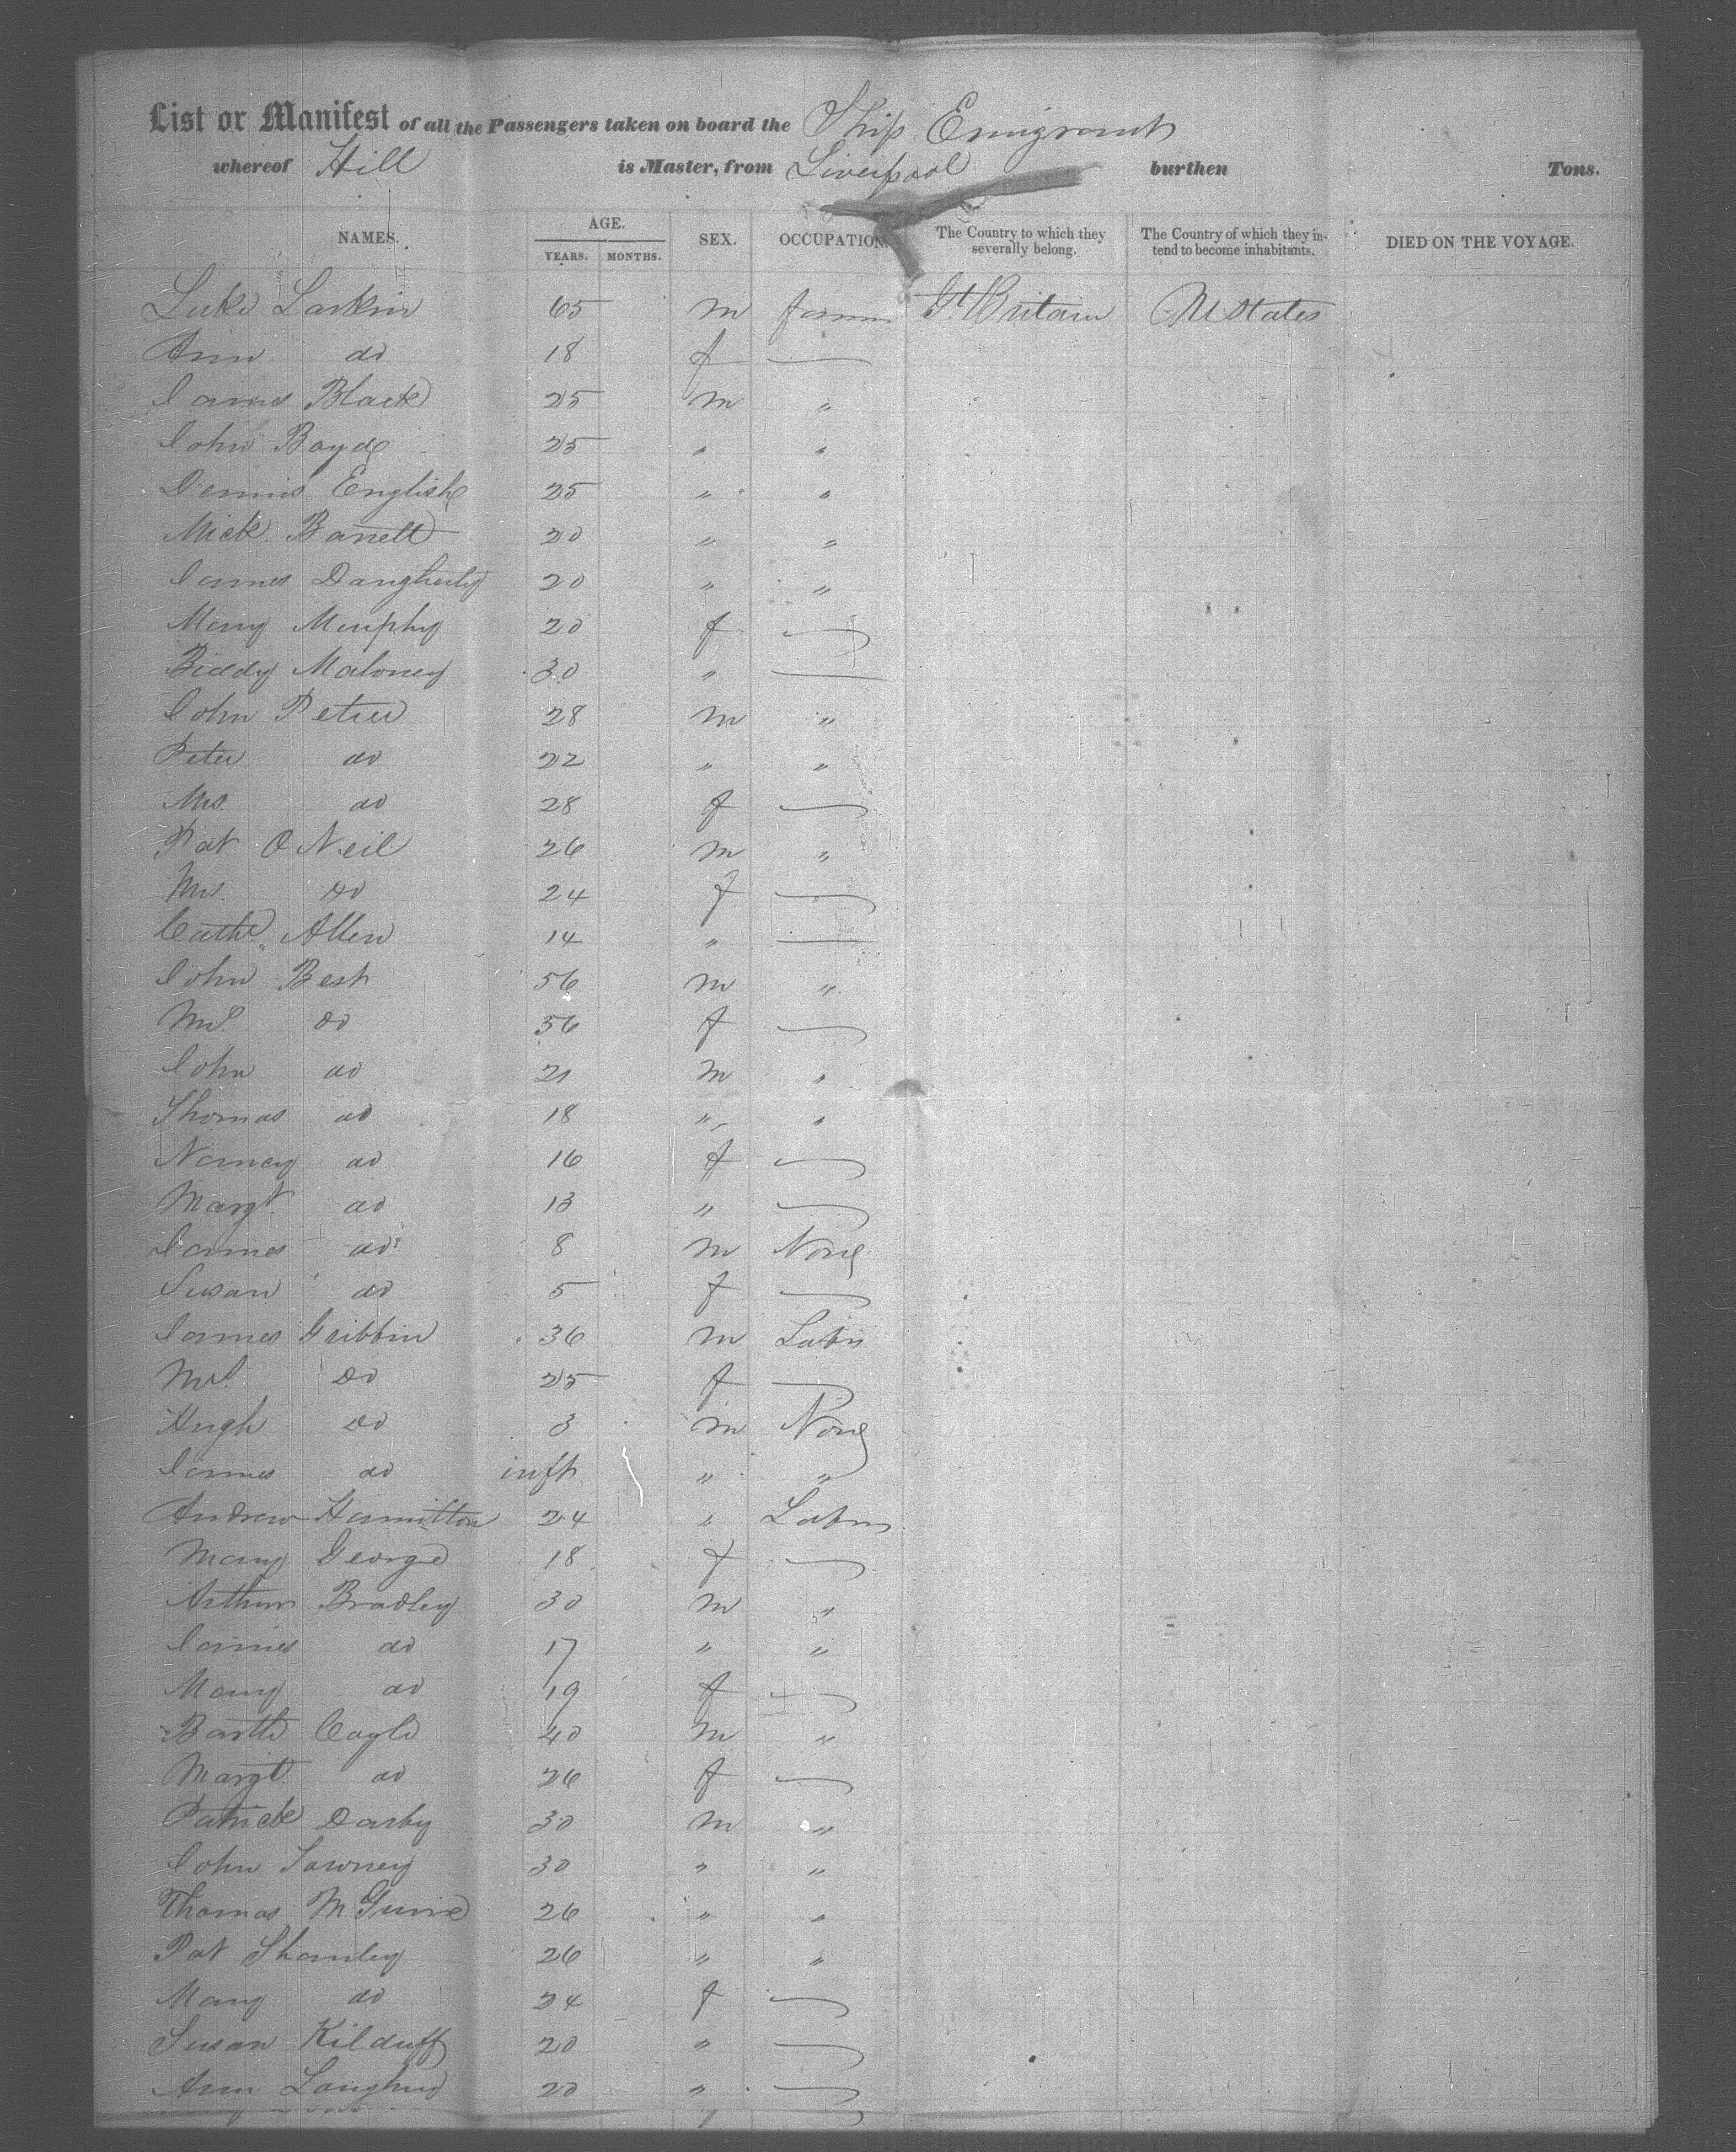 List or Manifest of all the Passengers taken on board the Ship Emigrant
whereof Hill is Master, from Liverpool burthen Tons.
NAMES. AGE. YEARS. MONTHS. SEX. OCCUPATION. The Country to which they severally belong. The Country of which they intend to become inhabitants. DIED ON THE VOYAGE.
Luke Larkin 65 m farmer Gt Britain U States
Ann do 18 f —
James Black 25 m "
John Boyd 25 " "
Dennis English 25 " "
Mick Barrett 20 " "
James Daugherty 20 " "
Mary Murphy 20 f —
Biddy Maloney 30 " —
John Petrie 28 m "
Peter do 22 " "
Mrs. do 28 f —
Pat O Neil 26 m "
Mrs. do 24 f —
Cathe Allen 14 " —
John Best 56 m "
Mrs. do 56 f —
John do 21 m "
Thomas do 18 " "
Nancy do 16 f —
Margt do 13 " —
James do 8 m None
Susan do 5 f —
James Gribbin 36 m Labr
Mrs. do 25 f —
Hugh do 3 m None
James do inft " "
Andrew Hamilton 24 " Labr
Mary George 18 f —
Arthur Bradley 30 m "
James do 17 " "
Mary do 19 f —
Bartle Cagle 40 m "
Margt do 26 f —
Patrick Darby 30 m "
John 30 " "
Thomas McGuire 26 " "
Pat Shanley 26 " "
Mary do 24 f —
Susan Kilduff 20 " —
Ann 20 " —